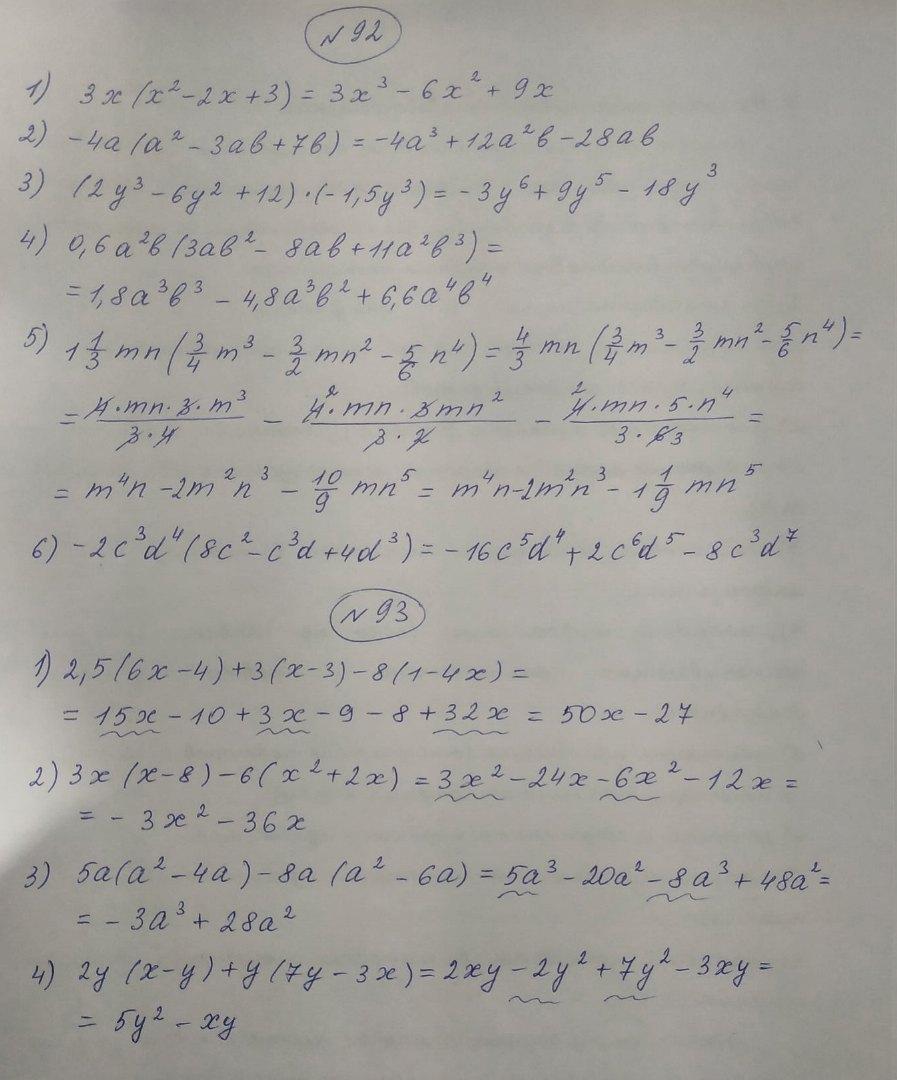 №92
1) 3x(x²-2x+3)=3x³-6x²+9x
2) -4a(a²-3ab+7b)=-4a³+12a²b-28ab
3) (2y³-6y²+12)·(-1,5y³)=-3y⁶+9y⁵-18y³
4) 0,6a²b(3ab²-8ab+11a²b³)=
=1,8a³b³-4,8a³b²+6,6a⁴b⁴
5) 1 1/3 mn(3/4 m³-3/2 mn²-5/6 n⁴)=4/3 mn(3/4 m³-3/2 mn²-5/6 n⁴)=
=4·mn·3·m³/3·4 - 4 2·mn·3mn²/3·2 - 4 2·mn·5·n⁴/3·6 3=
=m⁴n-2m²n³-10/9 mn⁵=m⁴n-2m²n³-1 1/9 mn⁵
6) -2c³d⁴(8c²-c³d+4d³)=-16c⁵d⁴+2c⁶d⁵-8c³d⁷
№93
1) 2,5(6x-4)+3(x-3)-8(1-4x)=
=15x-10+3x-9-8+32x=50x-27
2) 3x(x-8)-6(x²+2x)=3x²-24x-6x²-12x=
=-3x²-36x
3) 5a(a²-4a)-8a(a²-6a)=5a³-20a²-8a³+48a²=
=-3a³+28a²
4) 2y(x-y)+y(7y-3x)=2xy-2y²+7y²-3xy=
=5y²-xy